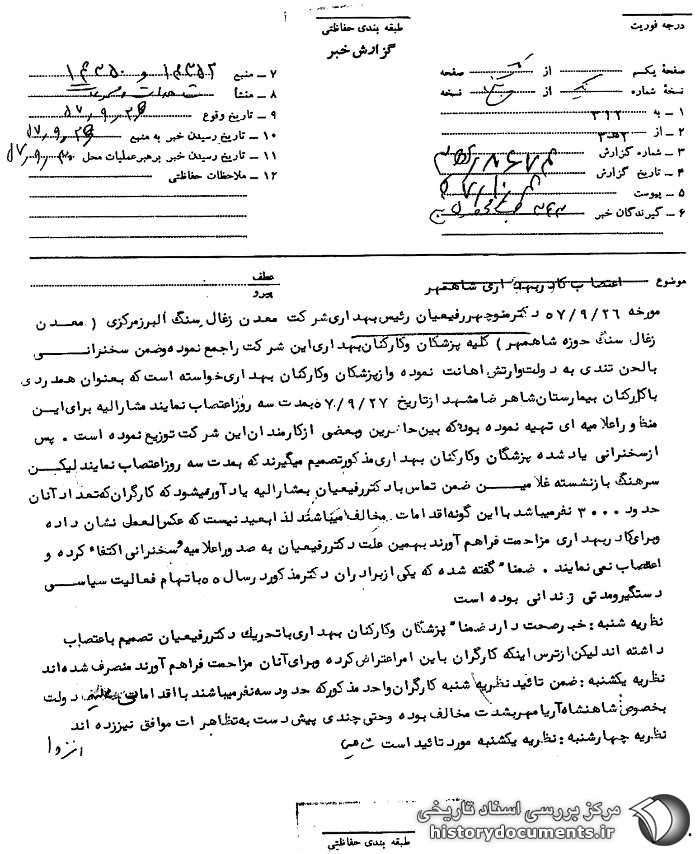 درجه فوریت
طبقه بندی حفاظتی
گزارش خبر
صفحهٔ یکم از صفحه
نسخهٔ شماره از نسخه
۱ ـ به ۳۱۲
۲ ـ از
۳ ـ شماره گزارش
۴ ـ تاریخ گزارش
۵ ـ پیوست
۶ ـ گیرندگان خبر
۷ ـ منبع
۸ ـ منشأ
۹ ـ تاریخ وقوع
۱۰ ـ تاریخ رسیدن خبر به منبع
۱۱ ـ تاریخ رسیدن خبر برهبرعملیات محل
۱۲ ـ ملاحظات حفاظتی
موضوع اعتصاب کادر بهداری شاهمهر
عطف
پیرو
مورخه ۵۷/۹/۲۶ دکترمنوچهررفیعیان رئیس بهداری شرکت معدن زغال سنگ البرزمرکزی ( معدن
زغال سنگ حوزه شاهمهر ) کلیه پزشکان وکارکنان بهداری این شرکت راجمع نموده وضمن سخنرانی
بالحن تندی به دولت وارتش اهانت نموده وازپزشکان وکارکنان بهداری خواسته است که بعنوان همدردی
باکارکنان بیمارستان شاهرضا مشهد ازتاریخ ۵۷/۹/۲۷ بمدت سه روزاعتصاب نمایند مشارالیه برای این
منظوراعلامیه ای تهیه نموده بود که بین حاضرین وبعضی ازکارمندان این شرکت توزیع نموده است . پس
ازسخنرانی یاد شده پزشکان وکارکنان بهداری مذکورتصمیم میگیرند که بمدت سه روزاعتصاب نمایند لیکن
سرهنگ بازنشسته غلامین ضمن تماس بادکتررفیعیان بمشارالیه یادآورمیشود که کارگران که تعداد آنان
حدود ۳۰۰۰ نفرمیباشد با این گونه اقدامات مخالف میباشند لذا بعید نیست که عکس العمل نشان داده
وبرای کادربهداری مزاحمت فراهم آورند بهمین علت دکتررفیعیان به صدوراعلامیه وسخنرانی اکتفاء کرده و
اعتصاب نمی نمایند . ضمنا" گفته شده که یکی ازبرادران دکترمذکوردرسال ۵۵ باتهام فعالیت سیاسی
دستگیرومدتی زندانی بوده است
نظریه شنبه : خبرصحت دارد ضمنا" پزشکان وکارکنان بهداری باتحریک دکتررفیعیان تصمیم باعتصاب
داشته اند لیکن ازترس اینکه کارگران باین امراعتراض کرده وبرای آنان مزاحمت فراهم آورند منصرف شده اند
نظریه یکشنبه : ضمن تائید نظریه شنبه کارگران واحد مذکورکه حدود سه نفرمیباشند بااقدامات دولت
بخصوص شاهنشاه آریامهربشدت مخالف بوده وحتی چندی پیش دست به تظاهرات موافق نیززده اند
نظریه چهارشنبه : نظریه یکشنبه مورد تائید است
طبقه بندی حفاظتی
مرکز بررسی اسناد تاریخی
historydocuments.ir